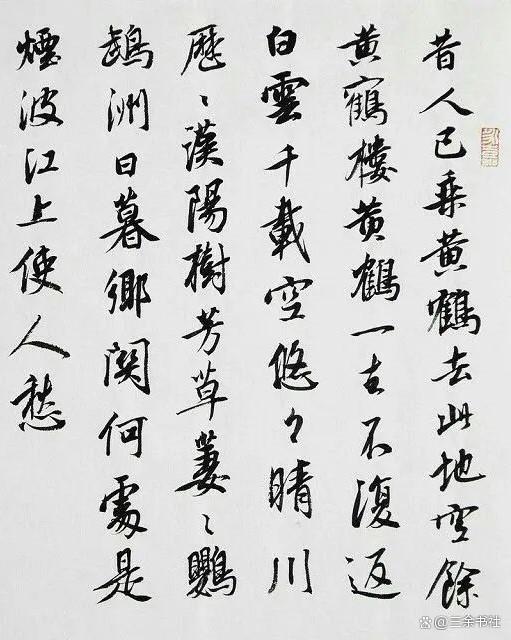 昔人已乘黄鶴去此地空餘
黄鶴樓黄鶴一去不復返
白雲千載空悠々晴川
歷〻漢陽樹芳草萋〻鸚
鵡洲日暮鄉関何處是
煙波江上使人愁
三余书社